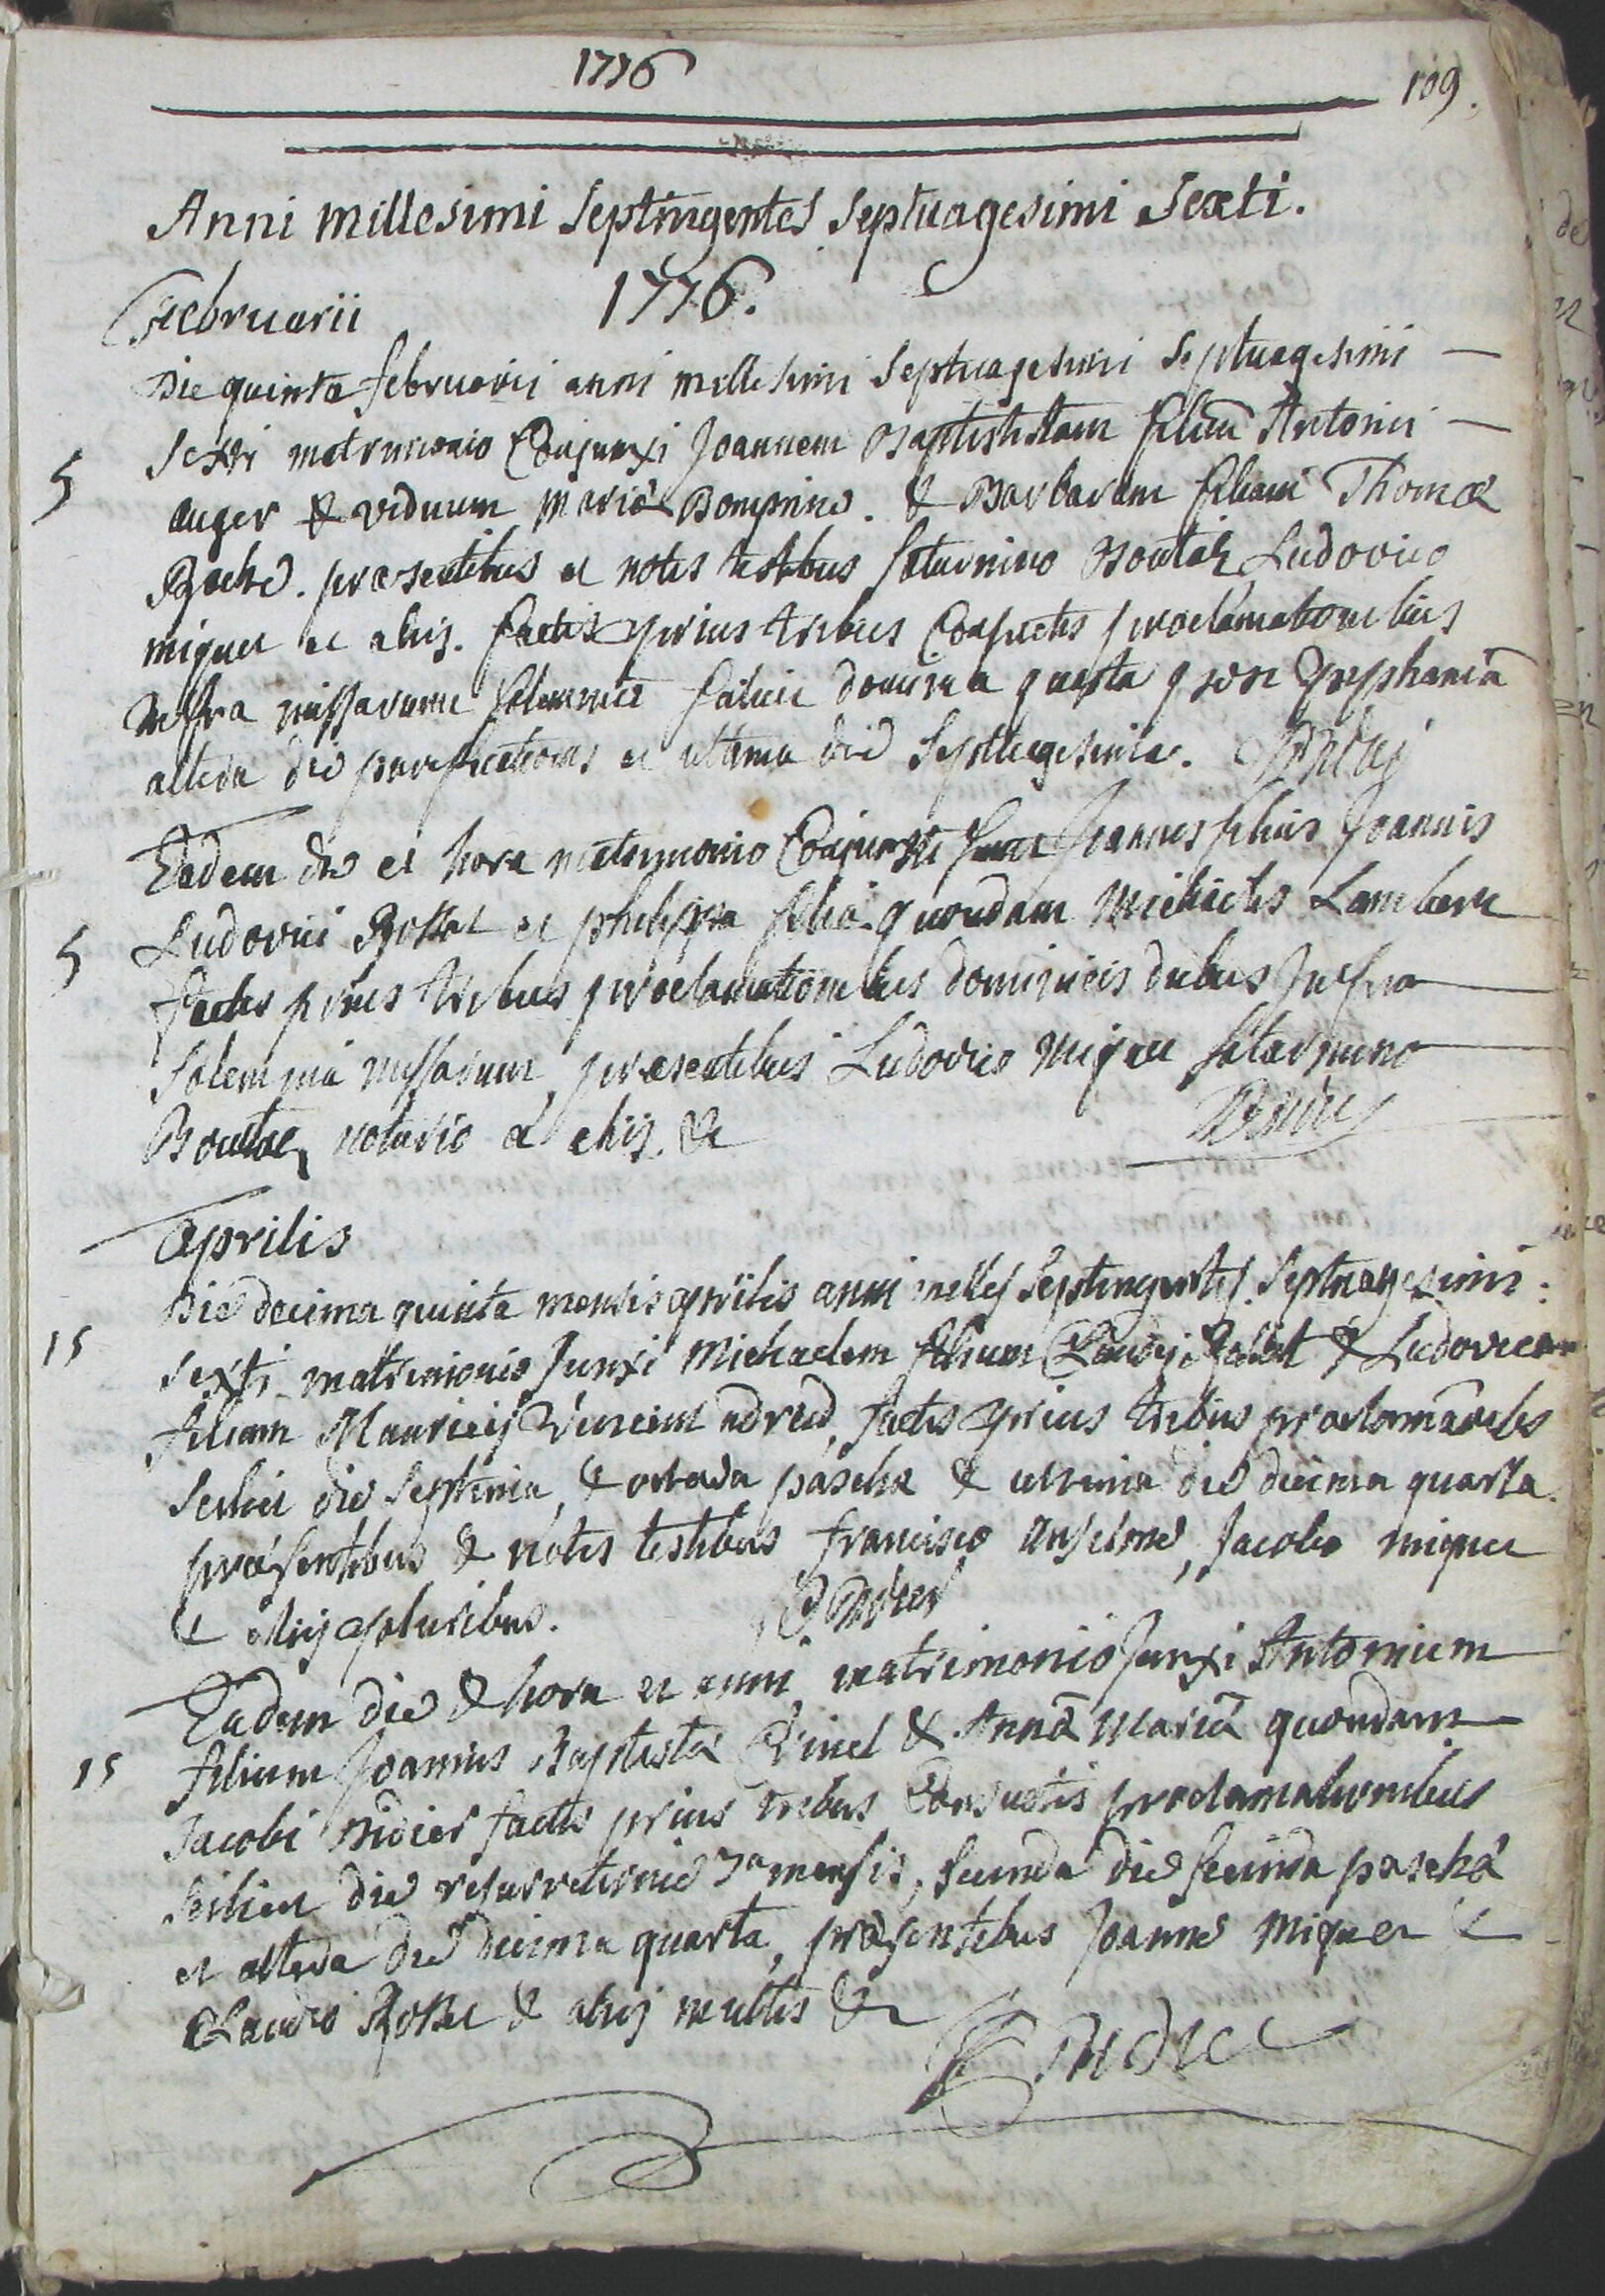 1776
109.
Anni millesimi Septingentes Septuagesimi Sexti.
1776.
Februarii
Die quinta februarii anni millesimi Septuagesimi Septuagesimi
5 Sexti matrimonio Conjunxi Joannem Baptististam filiũ Antonii
auger & viduum mariæ Bomprino. & Barbaram filiam Thomæ
Roche. præsentibus et notis testibus Saturnino Boutaz Ludovico
miquet et aliis. factis prius tribus Consuetis proclamationibus
Infra missarum solemnia scilicet dominica quarta post Epyphaniã
altera die purificationis et ultima die Septuagesimæ.
Eadem die et hora matrimonio Conjuncti sunt Joannes filius Joannis
5 Ludovici Rossat et philippa filia quondam Michaelis Lambert
factis prius tribus proclamationibus dominicis diebus Infra
Solemnia missarum, præsentibus Ludovico miquet Saturnino
Boutaz notario et aliis. &c
Aprilis
Die decima quinta mensis aprilis anni milles Septingentes. Septuagesimi
15 Sexti matrimonio Junxi Michaelem filium Claudij & Ludovicam
filiam Mauricij Vincent factis prius tribus proclamaõnibs
scilicet die Septima, & octava paschæ & ultima die decima quarta.
præsentibus & notis testibus francisco anselme, Jacobo miquet
& aliis pluribus. Didier
Eadem die & hora et anni matrimonio Junxi Antonium
15 filium Joannis Baptistæ Vinel & Annã Mariã quondam
Jacobi Didier factis prius tribus Consuetis proclamationibus
scilicet die resurrectionis 7a mensis, secunda die secunda paschæ
et altera die decima quarta, præsentibus Joanne Miquet &
Claudio Rosset & aliis multis &c
Didier